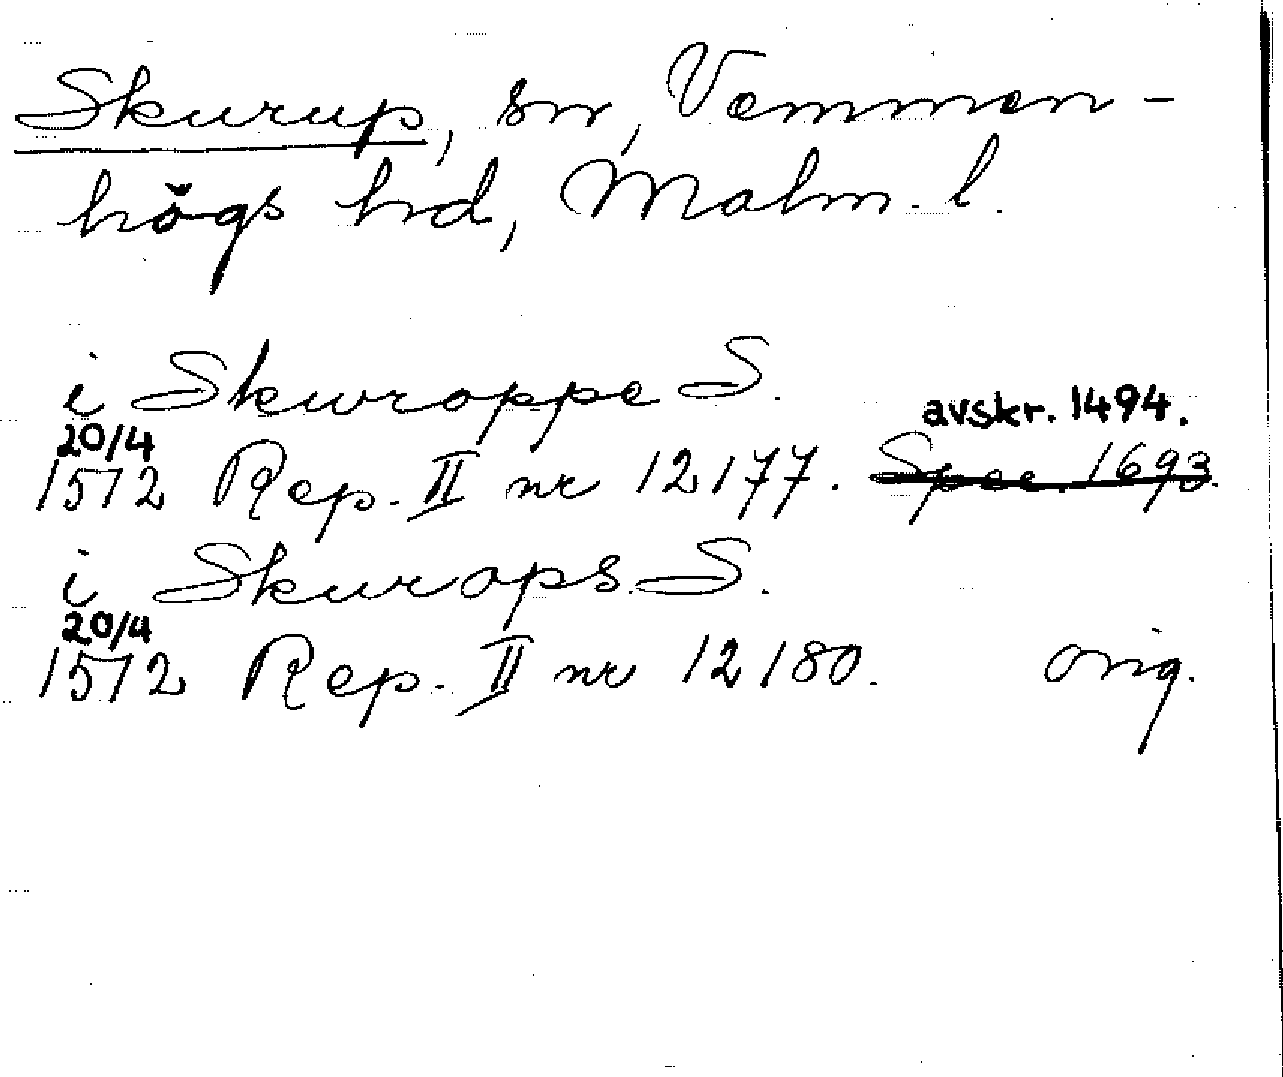 Skurup, sn, Vemmen-
högs hd, Malm. l.
i Skwroppe S.
avskr. 1494.
20/4
1572 Rep. II nr 12177. Spec. 1693.
i Skwrops S.
20/4
1572 Rep. II nr 12180. orig.